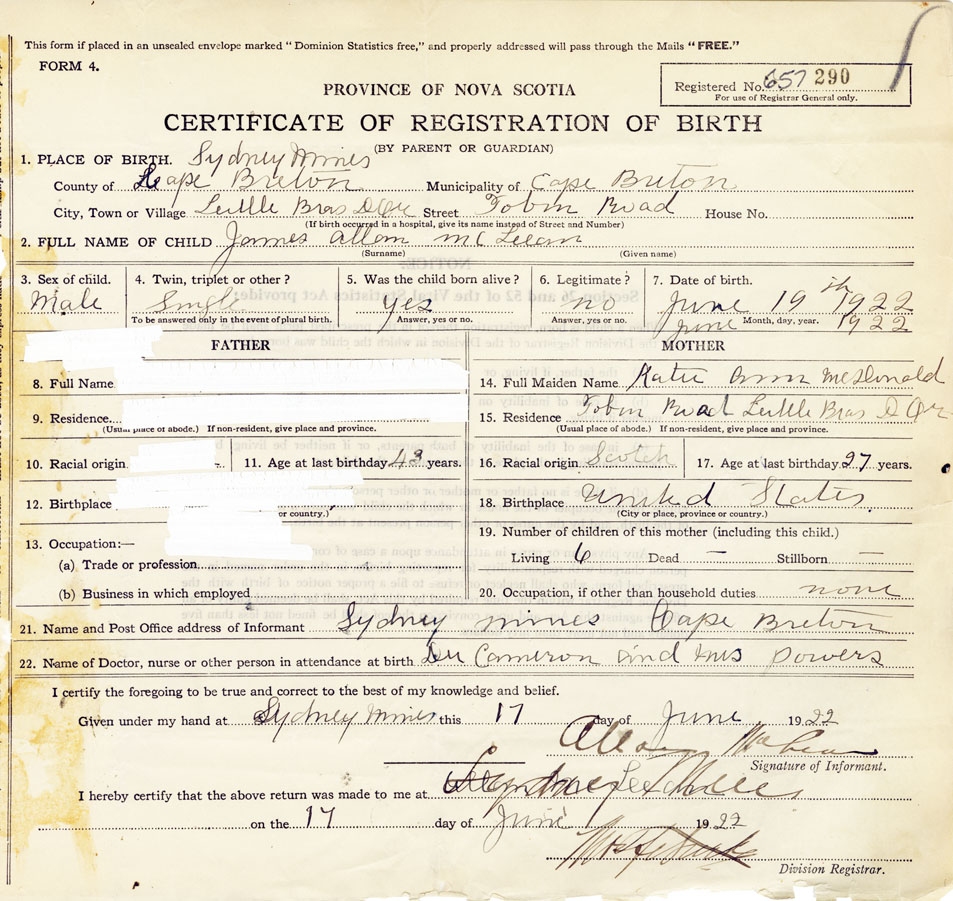 This form if placed in an unsealed envelope marked "Dominion Statistics free," and properly addressed will pass through the Mails "FREE."
FORM 4.
Registered No. 657 290
For use of Registrar General only.
PROVINCE OF NOVA SCOTIA
CERTIFICATE OF REGISTRATION OF BIRTH
(BY PARENT OR GUARDIAN)
1. PLACE OF BIRTH. Sydney Mines
County of Cape Breton Municipality of Cape Breton
City, Town or Village Little Bras D Or Street Tobin Road House No.
(If birth occurred in a hospital, give its name instead of Street and Number)
2. FULL NAME OF CHILD James Allan McLean
(Surname) (Given name)
3. Sex of child. 4. Twin, triplet or other? 5. Was the child born alive? 6. Legitimate? 7. Date of birth.
Male Single yes no June 19th 1922
To be answered only in the event of plural birth. Answer, yes or no. Answer, yes or no. June Month, day, year. 1922
FATHER MOTHER
8. Full Name 14. Full Maiden Name Katie Ann McDonald
9. Residence 15. Residence Tobin Road Little Bras D Or
(Usual place of abode.) If non-resident, give place and province. (Usual place of abode.) If non-resident, give place and province.
10. Racial origin 11. Age at last birthday 43 years. 16. Racial origin Scotch 17. Age at last birthday 27 years.
12. Birthplace 18. Birthplace United States
or country.) (City or place, province or country.)
13. Occupation:— 19. Number of children of this mother (including this child.)
(a) Trade or profession Living 6 Dead — Stillborn —
(b) Business in which employed 20. Occupation, if other than household duties none
21. Name and Post Office address of Informant Sydney mines Cape Breton
22. Name of Doctor, nurse or other person in attendance at birth Dr Cameron and Mrs Powers
I certify the foregoing to be true and correct to the best of my knowledge and belief.
Given under my hand at Sydney Mines this 17 day of June 1922
Signature of Informant.
I hereby certify that the above return was made to me at
on the 17 day of June 1922
Division Registrar.